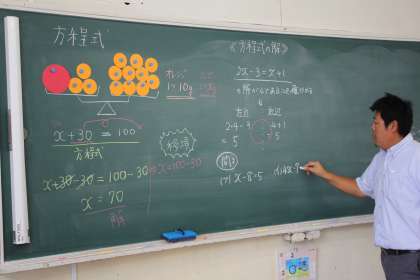 方程式
オレンジ
1つ10g
x+30 = 100
方程式
移項
x+30-30 = 100-30
x=100-30
x = 70
解
《方程式の解》
2x-3=x+1
左辺 右辺
2・4-3 4+1
=5 =5
問3
(ア) x-8=5